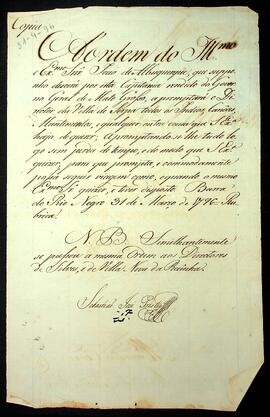 Copia
De ordem do Illmo
e Exmo Snr João de Albuquerque, que supponho
descerá por esta Capitania vindo do Gover
no Geral de Mato Grosso, apromptará o Di
rector da Villa de Borba todos os Indios, Canôas,
Mantimentos, e qualquer outra cousa que S Exa
haja de querer. Apromptando-se lhe tudo lo
go sem perda de tempo, e do modo que S Exa
quizer, para que prompta, e commodamente
possa seguir viagem como, e quando o mesmo
Exmo Sr quizer, e tiver disposto. Barra
do Rio Negro 31 de Março de 1796. Ru
brica.
N. B. Similhantemente
se passou a mesma Ordem aos Directores
de Silves, e de Villa Nova da Rainha.